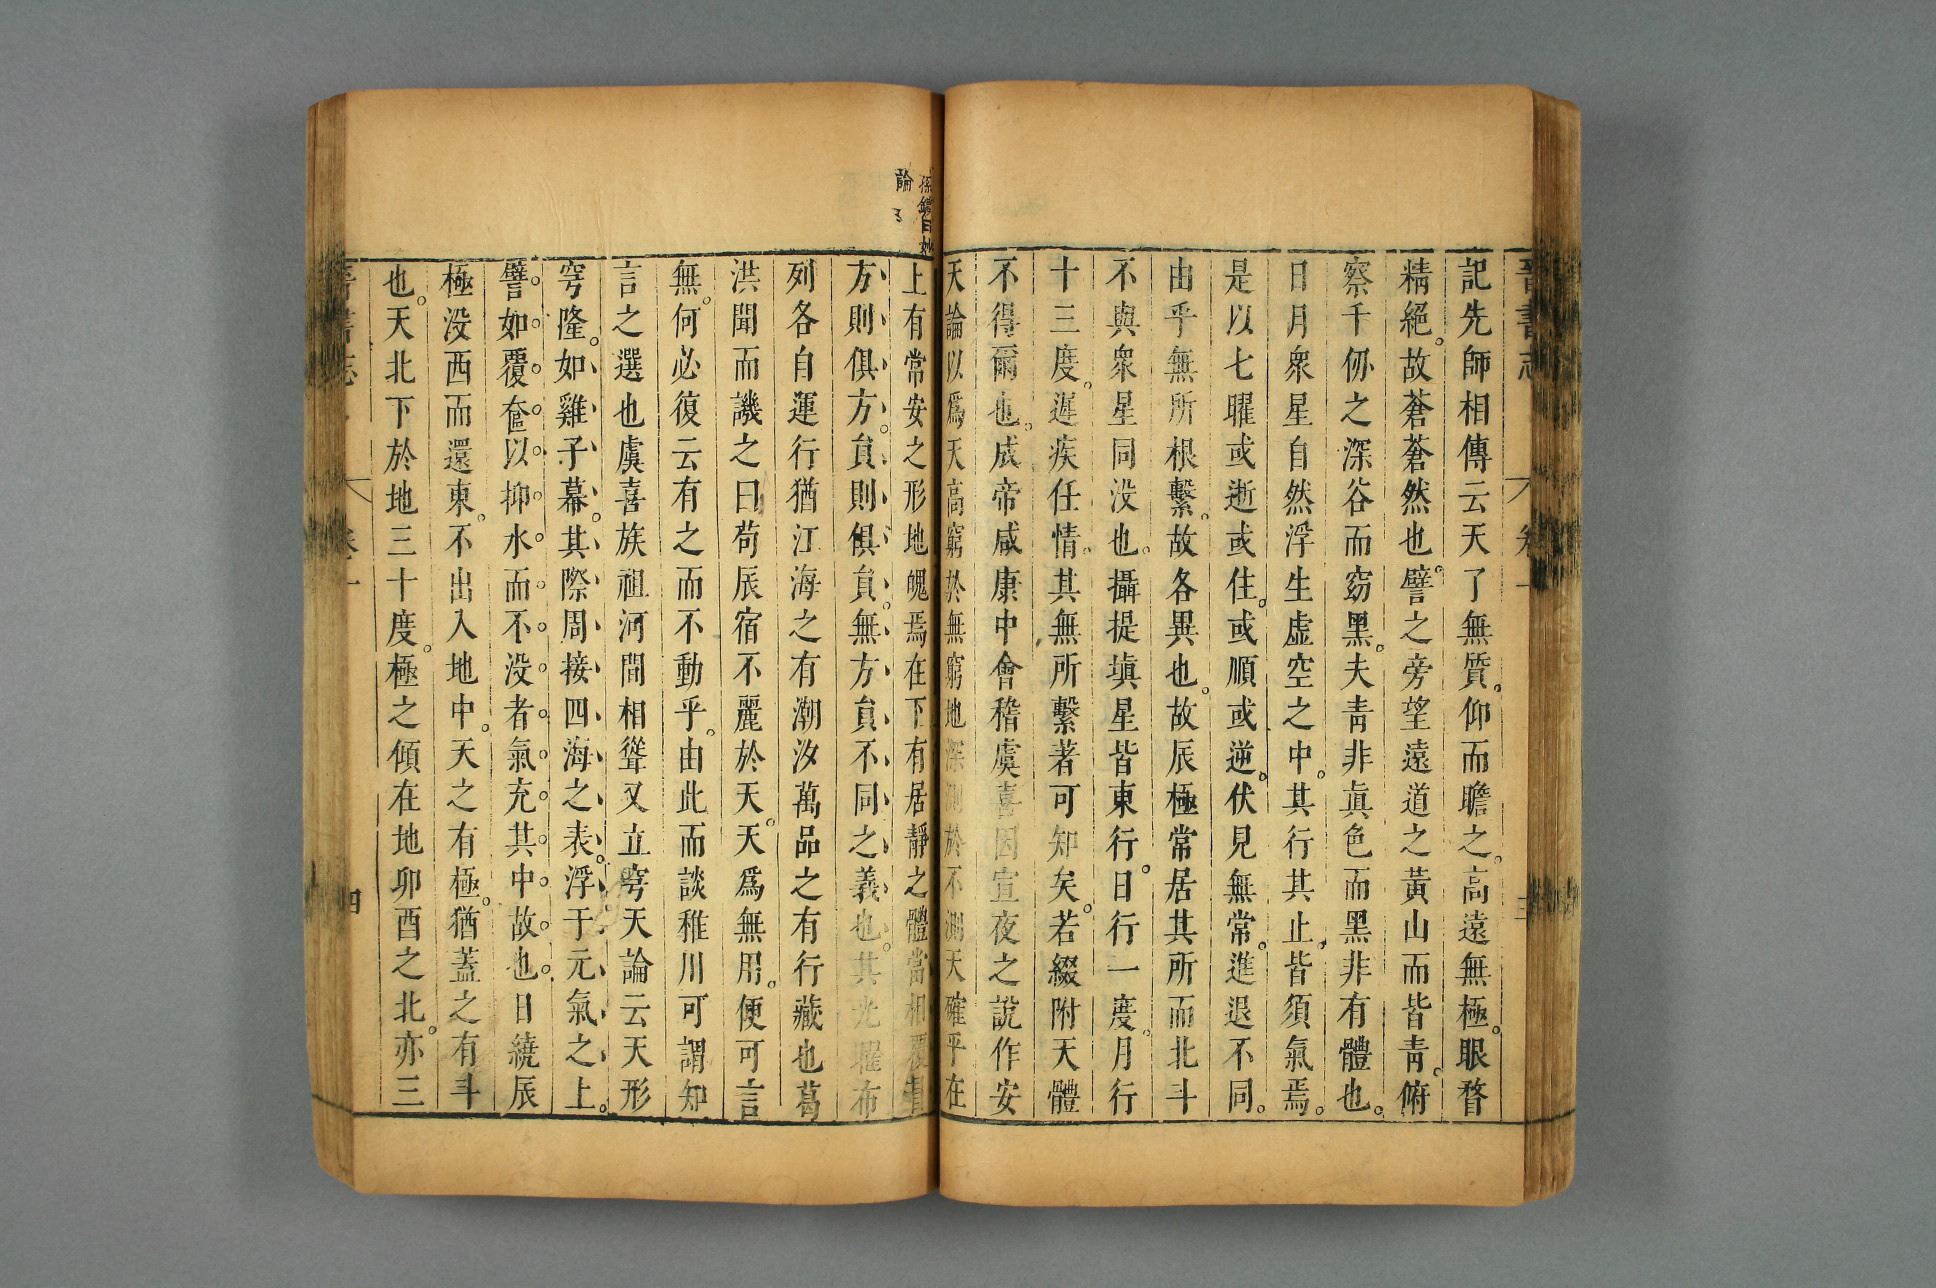 晉書志 卷一 三
記先師相傳云天了無質。仰而瞻之。高遠無極。眼瞀
精絕。故蒼蒼然也。譬之旁望遠道之黃山而皆靑。俯
察千仞之深谷而窈黑。夫靑非眞色而黑非有體也。
日月衆星自然浮生虛空之中。其行其止。皆須氣焉。
是以七曜或逝或住。或順或逆。伏見無常。進退不同。
由乎無所根繫。故各異也。故辰極常居其所而北斗
不與衆星同没也。攝提塡星皆東行。日行一度。月行
十三度。遲疾任情。其無所繫著可知矣。若綴附天體
不得爾也。成帝咸康中會稽虞喜因宣夜之說作安
天論以爲天高窮於無窮地深測於不測天確乎在
上有常安之形地魄焉在下有居靜之體當相覆冒
方則俱方。負則俱負。無方負不同之義也。其光曜布
列各自運行猶江海之有潮汐萬品之有行藏也葛
洪聞而譏之曰苟辰宿不麗於天。天爲無用。便可言
無。何必復云有之而不動乎。由此而談稚川可謂知
言之選也虞喜族祖河間相聳又立穹天論云天形
穹隆。如雞子幕。其際周接四海之表。浮于元氣之上。
譬。如。覆。奩。以。抑。水。而。不。没。者。氣。充。其。中。故。也。日繞辰
極没西而還東。不出入地中。天之有極。猶蓋之有斗
也。天北下於地三十度。極之傾在地卯酉之北。亦三
晉書志 卷一 四
論